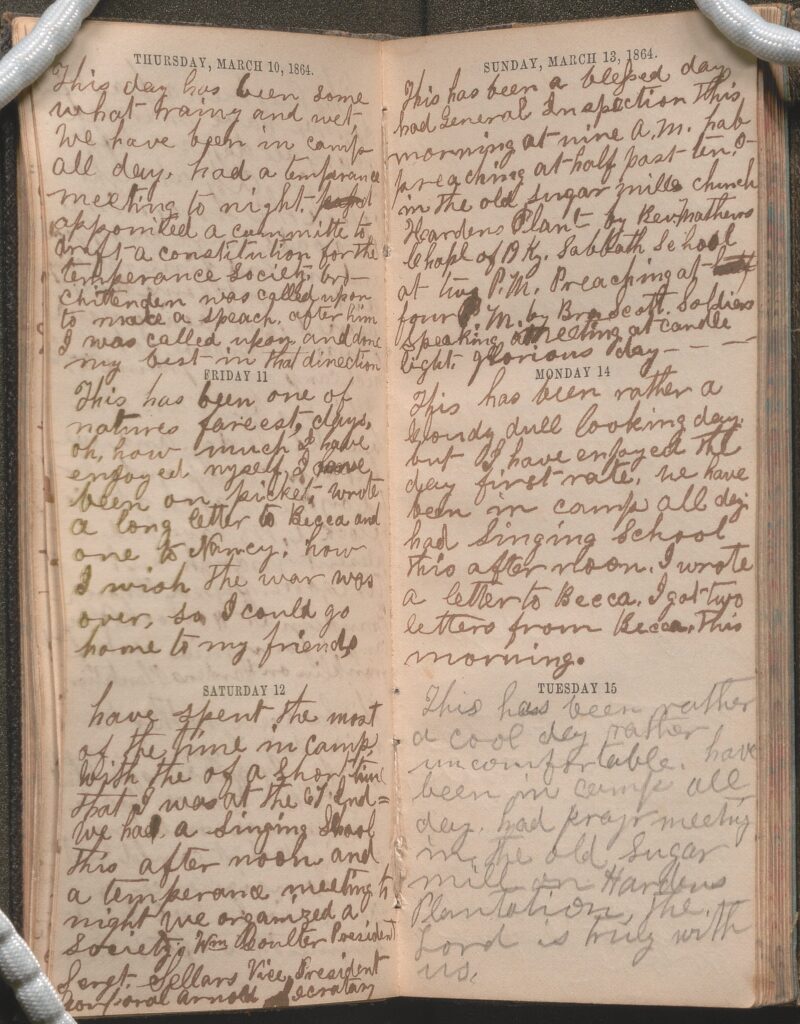 THURSDAY, MARCH 10, 1864.
This day has been some
what rainy and wet
We have been in camp
all day. had a temperance
meeting to night.
appointed a committe to
draft a constitution for the
temperance Society. bro-
Chittenden was called upon
to make a speach. after him
I was called upon and done
my best in that direction
FRIDAY 11
This has been one of
natures fareest, days.
oh, how much I have
enjoyed myself, I
been on picket, wrote
a long letter to Becca and
one to Nancy: how
I wish the war was
over, so I could go
home to my friends
SATURDAY 12
have spent the most
of the time in camp.
With the of a short time
that I was at the 67 Ind=
We had a Singing School
this after noon and
a temperance meeting to
night we organized a
Society. Wm Coulter President
Sergt. Sellars Vice President
Corporal Arnold Secratary
SUNDAY, MARCH 13, 1864.
This has been a blessed day
had General Inspection this
morning at nine A.M. had
preaching at half past ten. O-
in the old sugar mills church
Hardens Plant- by Rev Mathews
Chapl of 19 Ky. Sabbath School
at two P.M. Preaching at-
four P.M. by Bro Scott. Soldiers
speaking meeting at candle
light. glorious day- - -
MONDAY 14
This has been rather a
cloudy dull looking day.
but I have enjoyed the
day first rate. we have
been in camp all day.
had Singing School
this after noon. I wrote
a letter to Becca. I got two
letters from Becca. this
morning.
TUESDAY 15
This has been rather
a cool day rather
uncomfortable. have
been in camp all
day. had prayr meeting
in the old Sugar
mill on Hardens
Plantation, the
Lord is truly with
us.